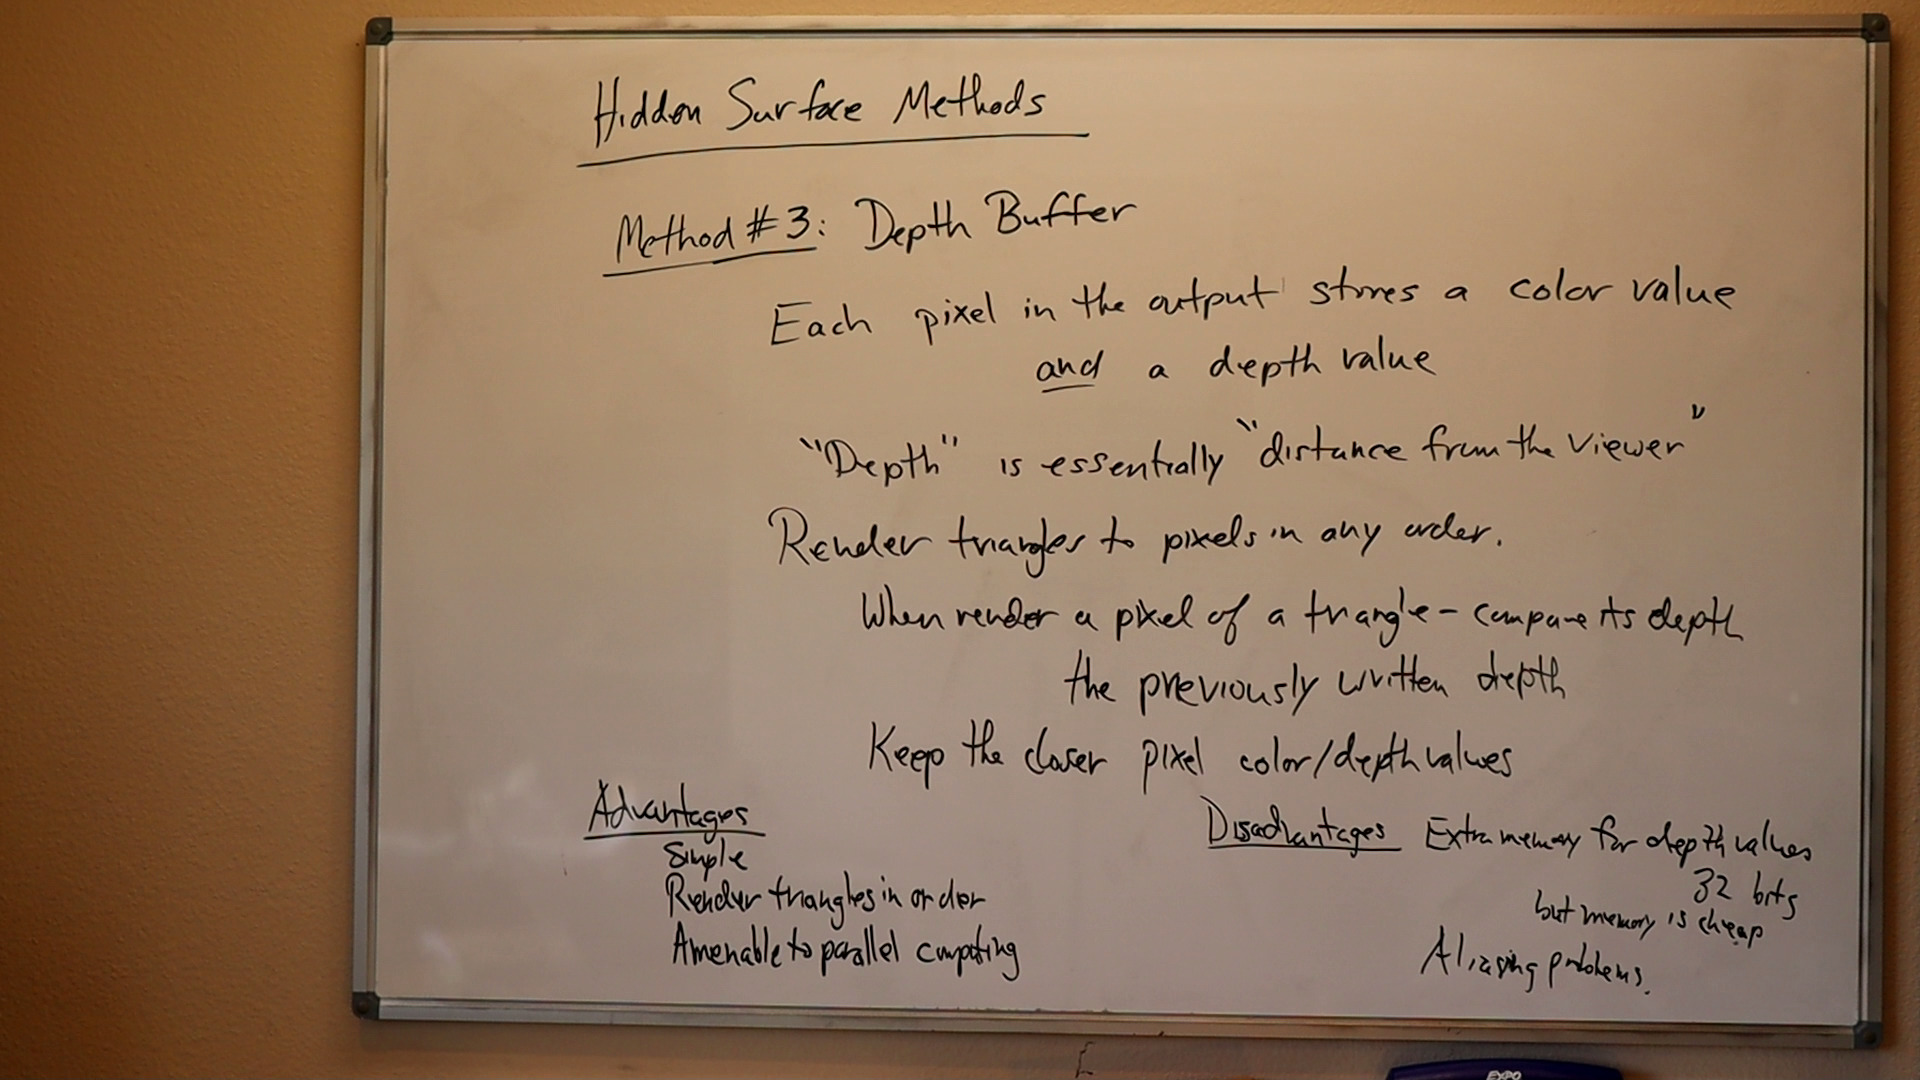 Hidden Surface Methods
Method #3: Depth Buffer
Each pixel in the output stores a color value
and a depth value
"Depth" is essentially "distance from the viewer"
Render triangles to pixels in any order.
When render a pixel of a triangle - compare its depth
the previously written depth
Keep the closer pixel color/depth values
Advantages
Simple
Render triangles in order
Amenable to parallel computing
Disadvantages Extra memory for depth values
32 bits
but memory is cheap
Aliasing problems.
EXPO